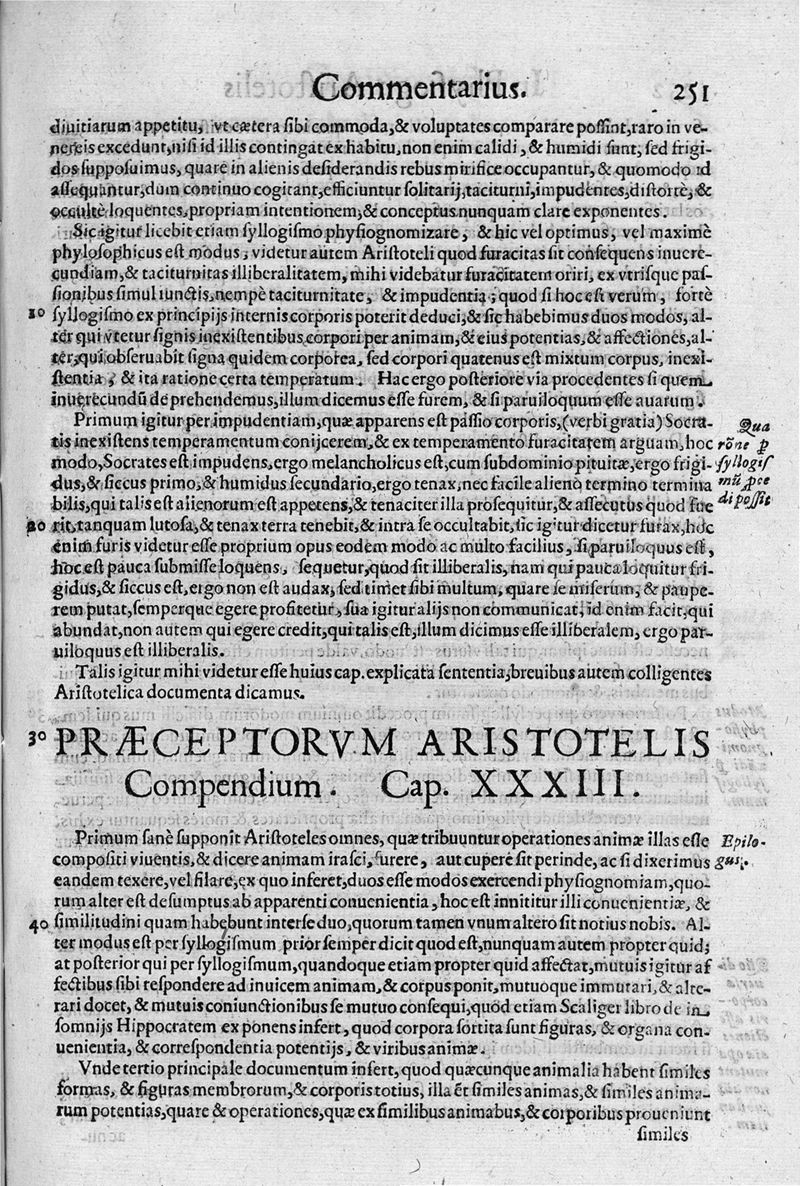 Commentarius. 251
diuitiarum appetitu, vt cætera sibi commoda,& voluptates comparare possint,raro in ve-
nereis excedunt,nisi id illis contingat ex habitu,non enim calidi,& humidi sunt, sed frigi-
dos supposuimus, quare in alienis desiderandis rebus mirifice occupantur, & quomodo id
assequantur,dum continuo cogitant,efficiuntur solitarij,taciturni,impudentes,distortè,&
occultè loquentes,propriam intentionem,& conceptus nunquam clare exponentes.
Sic igitur licebit etiam syllogismo physiognomizare, & hic vel optimus, vel maximè
phylosophicus est modus, videtur autem Aristoteli quod furacitas sit consequens inuere-
cundiam,& taciturnitas illiberalitatem, mihi videbatur furacitatem oriri, ex vtrisque pas-
sionibus simul iunctis,nempè taciturnitate, & impudentia; quod si hoc est verum, fortè
10 syllogismo ex principijs internis corporis poterit deduci,& sic habebimus duos modos, al-
ter qui vtetur signis inexistentibus corpori per animam,& eius potentias,& affectiones,al-
ter,qui obseruabit signa quidem corporea, sed corpori quatenus est mixtum corpus, inexi-
stentia, & ita ratione certa temperatum. Hac ergo posteriore via procedentes si quem
inuerecundũ deprehendemus,illum dicemus esse furem, & si paruiloquum esse auarum.
Primum igitur per impudentiam,quæ apparens est passio corporis,(verbi gratia) Socra- Qua
tis inexistens temperamentum conijcerem,& ex temperamento furacitatem arguam,hoc rõne p
modo,Socrates est impudens,ergo melancholicus est,cum subdominio pituitæ,ergo frigi- syllogis
dus,& siccus primo,& humidus secundario,ergo tenax,nec facile alieno termino termina mũ pce
bilis,qui talis est alienorum est appetens,& tenaciter illa prosequitur,& assecutus quod fue di possit
20 rit,tanquam lutosa,& tenax terra tenebit,& intra se occultabit,sic igitur dicetur furax,hoc
enim furis videtur esse proprium opus eodem modo ac multo facilius, si paruiloquus est,
hoc est pauca submisse loquens, sequetur,quod sit illiberalis, nam qui pauca loquitur fri-
gidus,& siccus est,ergo non est audax, sed timet sibi multum, quare se miserum, & paupe-
rem putat,semperque egere profitetur, sua igitur alijs non communicat, id enim facit,qui
abundat,non autem qui egere credit,qui talis est,illum dicimus esse illiberalem, ergo par-
uiloquus est illiberalis.
Talis igitur mihi videtur esse huius cap.explicata sententia,breuibus autem colligentes
Aristotelica documenta dicamus.
30 PRÆCEPTORVM ARISTOTELIS
Compendium. Cap. XXXIII.
Primum sanè supponit Aristoteles omnes, quæ tribuuntur operationes animæ illas esse Epilo-
compositi viuentis,& dicere animam irasci, furere, aut cupere sit perinde, ac si dixerimus gus.
eandem texere,vel filare,ex quo inferet,duos esse modos exercendi physiognomiam,quo-
rum alter est desumptus ab apparenti conuenientia, hoc est innititur illi conuenientiæ, &
40 similitudini quam habebunt inter se duo,quorum tamen vnum altero sit notius nobis. Al-
ter modus est per syllogismum prior semper dicit quod est,nunquam autem propter quid;
at posterior qui per syllogismum,quandoque etiam propter quid affectat,mutuis igitur af
fectibus sibi respondere ad inuicem animam,& corpus ponit,mutuoque immutari,& alte-
rari docet, & mutuis coniunctionibus se mutuo consequi,quod etiam Scaliger libro de in
somnijs Hippocratem exponens infert, quod corpora sortita sunt figuras, & organa con-
uenientia, & correspondentia potentijs, & viribus animæ.
Vnde tertio principale documentum infert, quod quæcunque animalia habent similes
formas, & figuras membrorum,& corporis totius, illa èt similes animas,& similes anima-
rum potentias,quare & operationes,quæ ex similibus animabus,& corporibus proueniunt
similes